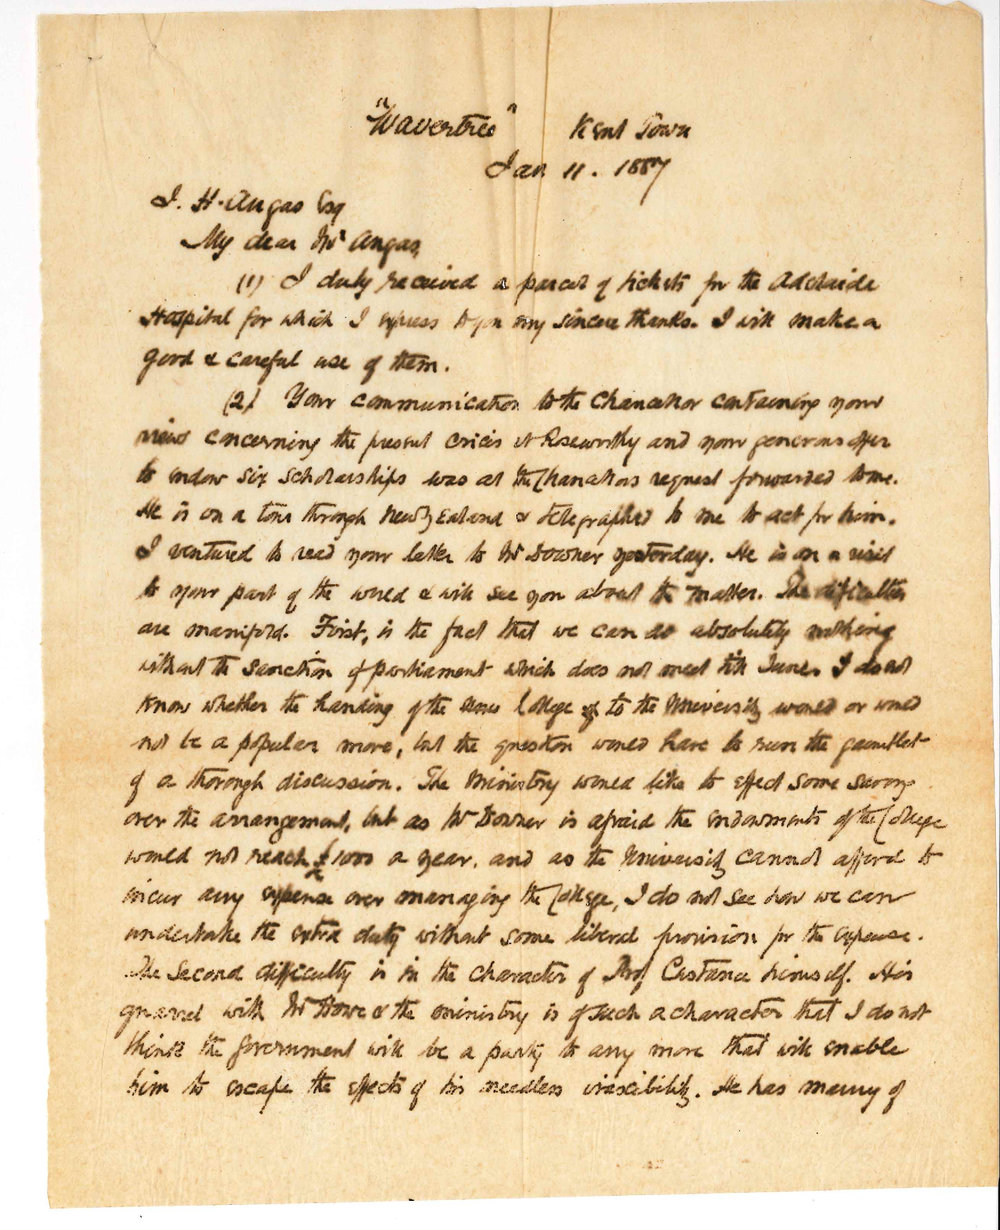 "Wavertree" Kent Town
Jan 11. 1887
J. H. Angas Esq
My dear Mr Angas,
(1) I duly received a parcel of tickets for the Adelaide
Hospital for which I express to you my sincere thanks. I will make a
good & careful use of them.
(2) Your communication to the Chancellor containing your
views concerning the present crisis at Roseworthy and your generous offer
to endow six scholarships was at the Chancellors request forwarded to me.
He is on a tour through New Zealand & telegraphed to me to act for him.
I ventured to read your letter to Mr Downer yesterday. He is on a visit
to your part of the world & will see you about the matter. The difficulties
are manifold. First, is the fact that we can do absolutely nothing
without the sanction of parliament which does not meet till June. I do not
know whether the handing of the new College to the University would or would
not be a popular move, but the question would have to run the gauntlet
of a thorough discussion. The Ministry would like to effect some saving
over the arrangement, but as Mr Downer is afraid the endowments of the College
would not reach £1000 a year, and as the University cannot afford to
incur any expense over managing the College, I do not see how we can
undertake the extra duty without some liberal provision for the expense.
The Second difficulty is in the character of Prof Custance himself. His
quarrel with Mr Howe & the ministry is of such a character that I do not
think the Government will be a party to any move that will enable
him to escape the effects of his needless irascibility. He has many of